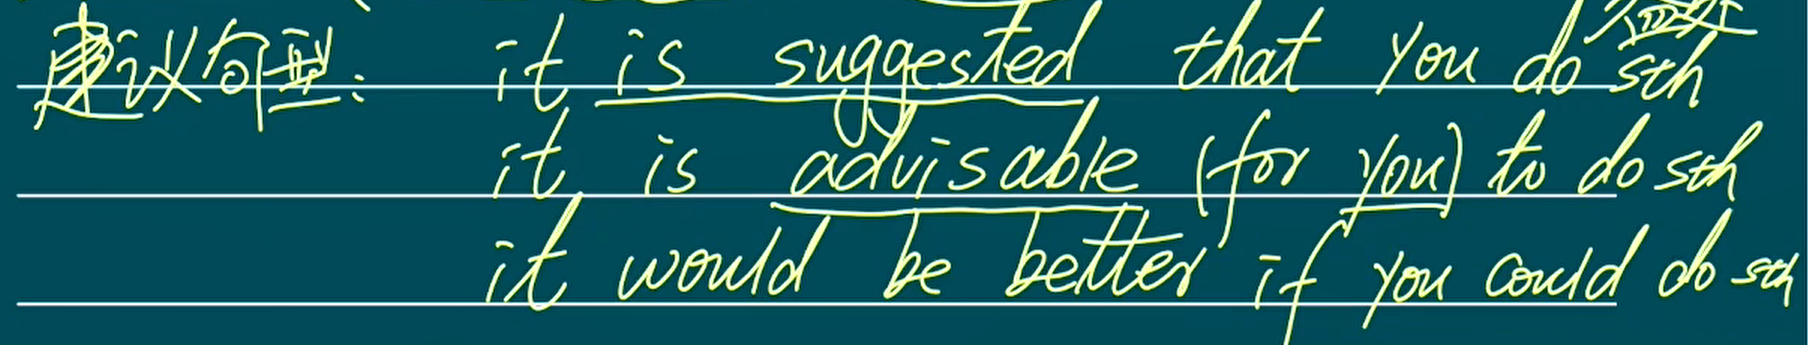 建议句型: it is suggested that you do sth
it is advisable (for you) to do sth
it would be better if you could do sth